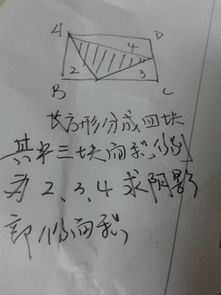 A D
4
2 3
B C
长方形分成四块
其中三块面积分别
为2、3、4求阴影
部份面积